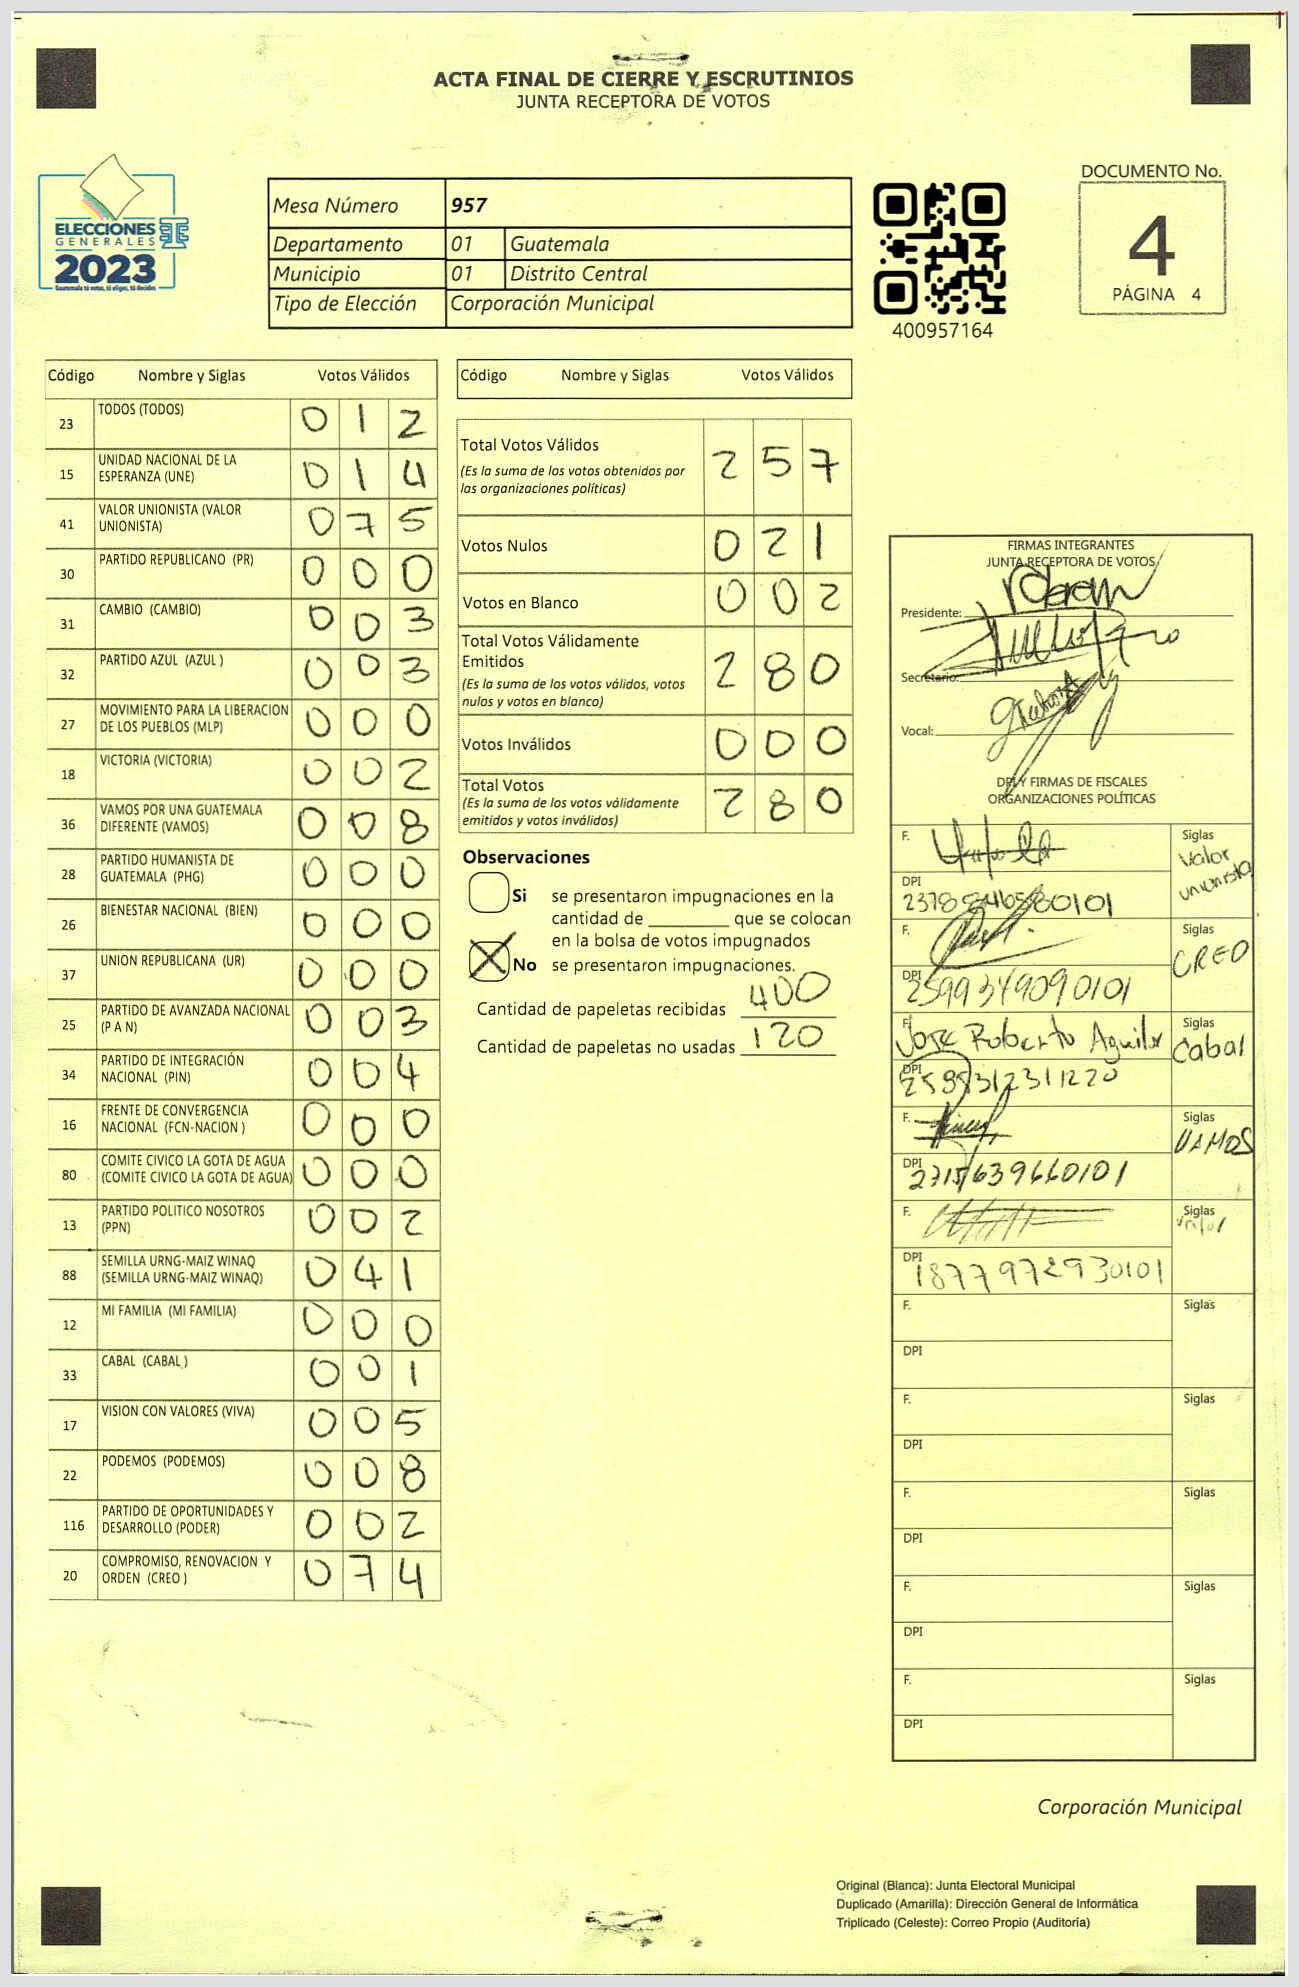 ACTA FINAL DE CIERRE Y ESCRUTINIOS
JUNTA RECEPTORA DE VOTOS
ELECCIONES
GENERALES
2023
Guatemala tú votas, tú eliges, tú decides
Mesa Número 957
Departamento 01 Guatemala
Municipio 01 Distrito Central
Tipo de Elección Corporación Municipal
400957164
DOCUMENTO No.
4
PÁGINA 4
Código Nombre y Siglas Votos Válidos
23 TODOS (TODOS) 0 1 2
15 UNIDAD NACIONAL DE LA
ESPERANZA (UNE) 0 1 4
41 VALOR UNIONISTA (VALOR
UNIONISTA) 0 7 5
30 PARTIDO REPUBLICANO (PR) 0 0 0
31 CAMBIO (CAMBIO) 0 0 3
32 PARTIDO AZUL (AZUL ) 0 0 3
27 MOVIMIENTO PARA LA LIBERACION
DE LOS PUEBLOS (MLP) 0 0 0
18 VICTORIA (VICTORIA) 0 0 2
36 VAMOS POR UNA GUATEMALA
DIFERENTE (VAMOS) 0 0 8
28 PARTIDO HUMANISTA DE
GUATEMALA (PHG) 0 0 0
26 BIENESTAR NACIONAL (BIEN) 0 0 0
37 UNION REPUBLICANA (UR) 0 0 0
25 PARTIDO DE AVANZADA NACIONAL
(P A N) 0 0 3
34 PARTIDO DE INTEGRACIÓN
NACIONAL (PIN) 0 0 4
16 FRENTE DE CONVERGENCIA
NACIONAL (FCN-NACION ) 0 0 0
80 COMITE CIVICO LA GOTA DE AGUA
(COMITE CIVICO LA GOTA DE AGUA) 0 0 0
13 PARTIDO POLITICO NOSOTROS
(PPN) 0 0 2
88 SEMILLA URNG-MAIZ WINAQ
(SEMILLA URNG-MAIZ WINAQ) 0 4 1
12 MI FAMILIA (MI FAMILIA) 0 0 0
33 CABAL (CABAL ) 0 0 1
17 VISION CON VALORES (VIVA) 0 0 5
22 PODEMOS (PODEMOS) 0 0 8
116 PARTIDO DE OPORTUNIDADES Y
DESARROLLO (PODER) 0 0 2
20 COMPROMISO, RENOVACION Y
ORDEN (CREO ) 0 7 4
Código Nombre y Siglas Votos Válidos
Total Votos Válidos 2 5 7
(Es la suma de los votos obtenidos por
las organizaciones políticas)
Votos Nulos 0 2 1
Votos en Blanco 0 0 2
Total Votos Válidamente
Emitidos 2 8 0
(Es la suma de los votos válidos, votos
nulos y votos en blanco)
Votos Inválidos 0 0 0
Total Votos 2 8 0
(Es la suma de los votos válidamente
emitidos y votos inválidos)
Observaciones
Si se presentaron impugnaciones en la
cantidad de ________ que se colocan
en la bolsa de votos impugnados
No se presentaron impugnaciones.
Cantidad de papeletas recibidas 400
Cantidad de papeletas no usadas 120
FIRMAS INTEGRANTES
JUNTA RECEPTORA DE VOTOS
Presidente:
Secretario:
Vocal:
DPI Y FIRMAS DE FISCALES
ORGANIZACIONES POLÍTICAS
F. Siglas
Valor
unionista
DPI
F. Siglas
CREO
DPI
2599349090101
F. Siglas
Jose Roberto Aguilar Cabal
DPI
F. Siglas
VAMOS
DPI
F. Siglas
DPI
1877972930101
F. Siglas
DPI
F. Siglas
DPI
F. Siglas
DPI
F. Siglas
DPI
F. Siglas
DPI
Corporación Municipal
Original (Blanca): Junta Electoral Municipal
Duplicado (Amarilla): Dirección General de Informática
Triplicado (Celeste): Correo Propio (Auditoría)